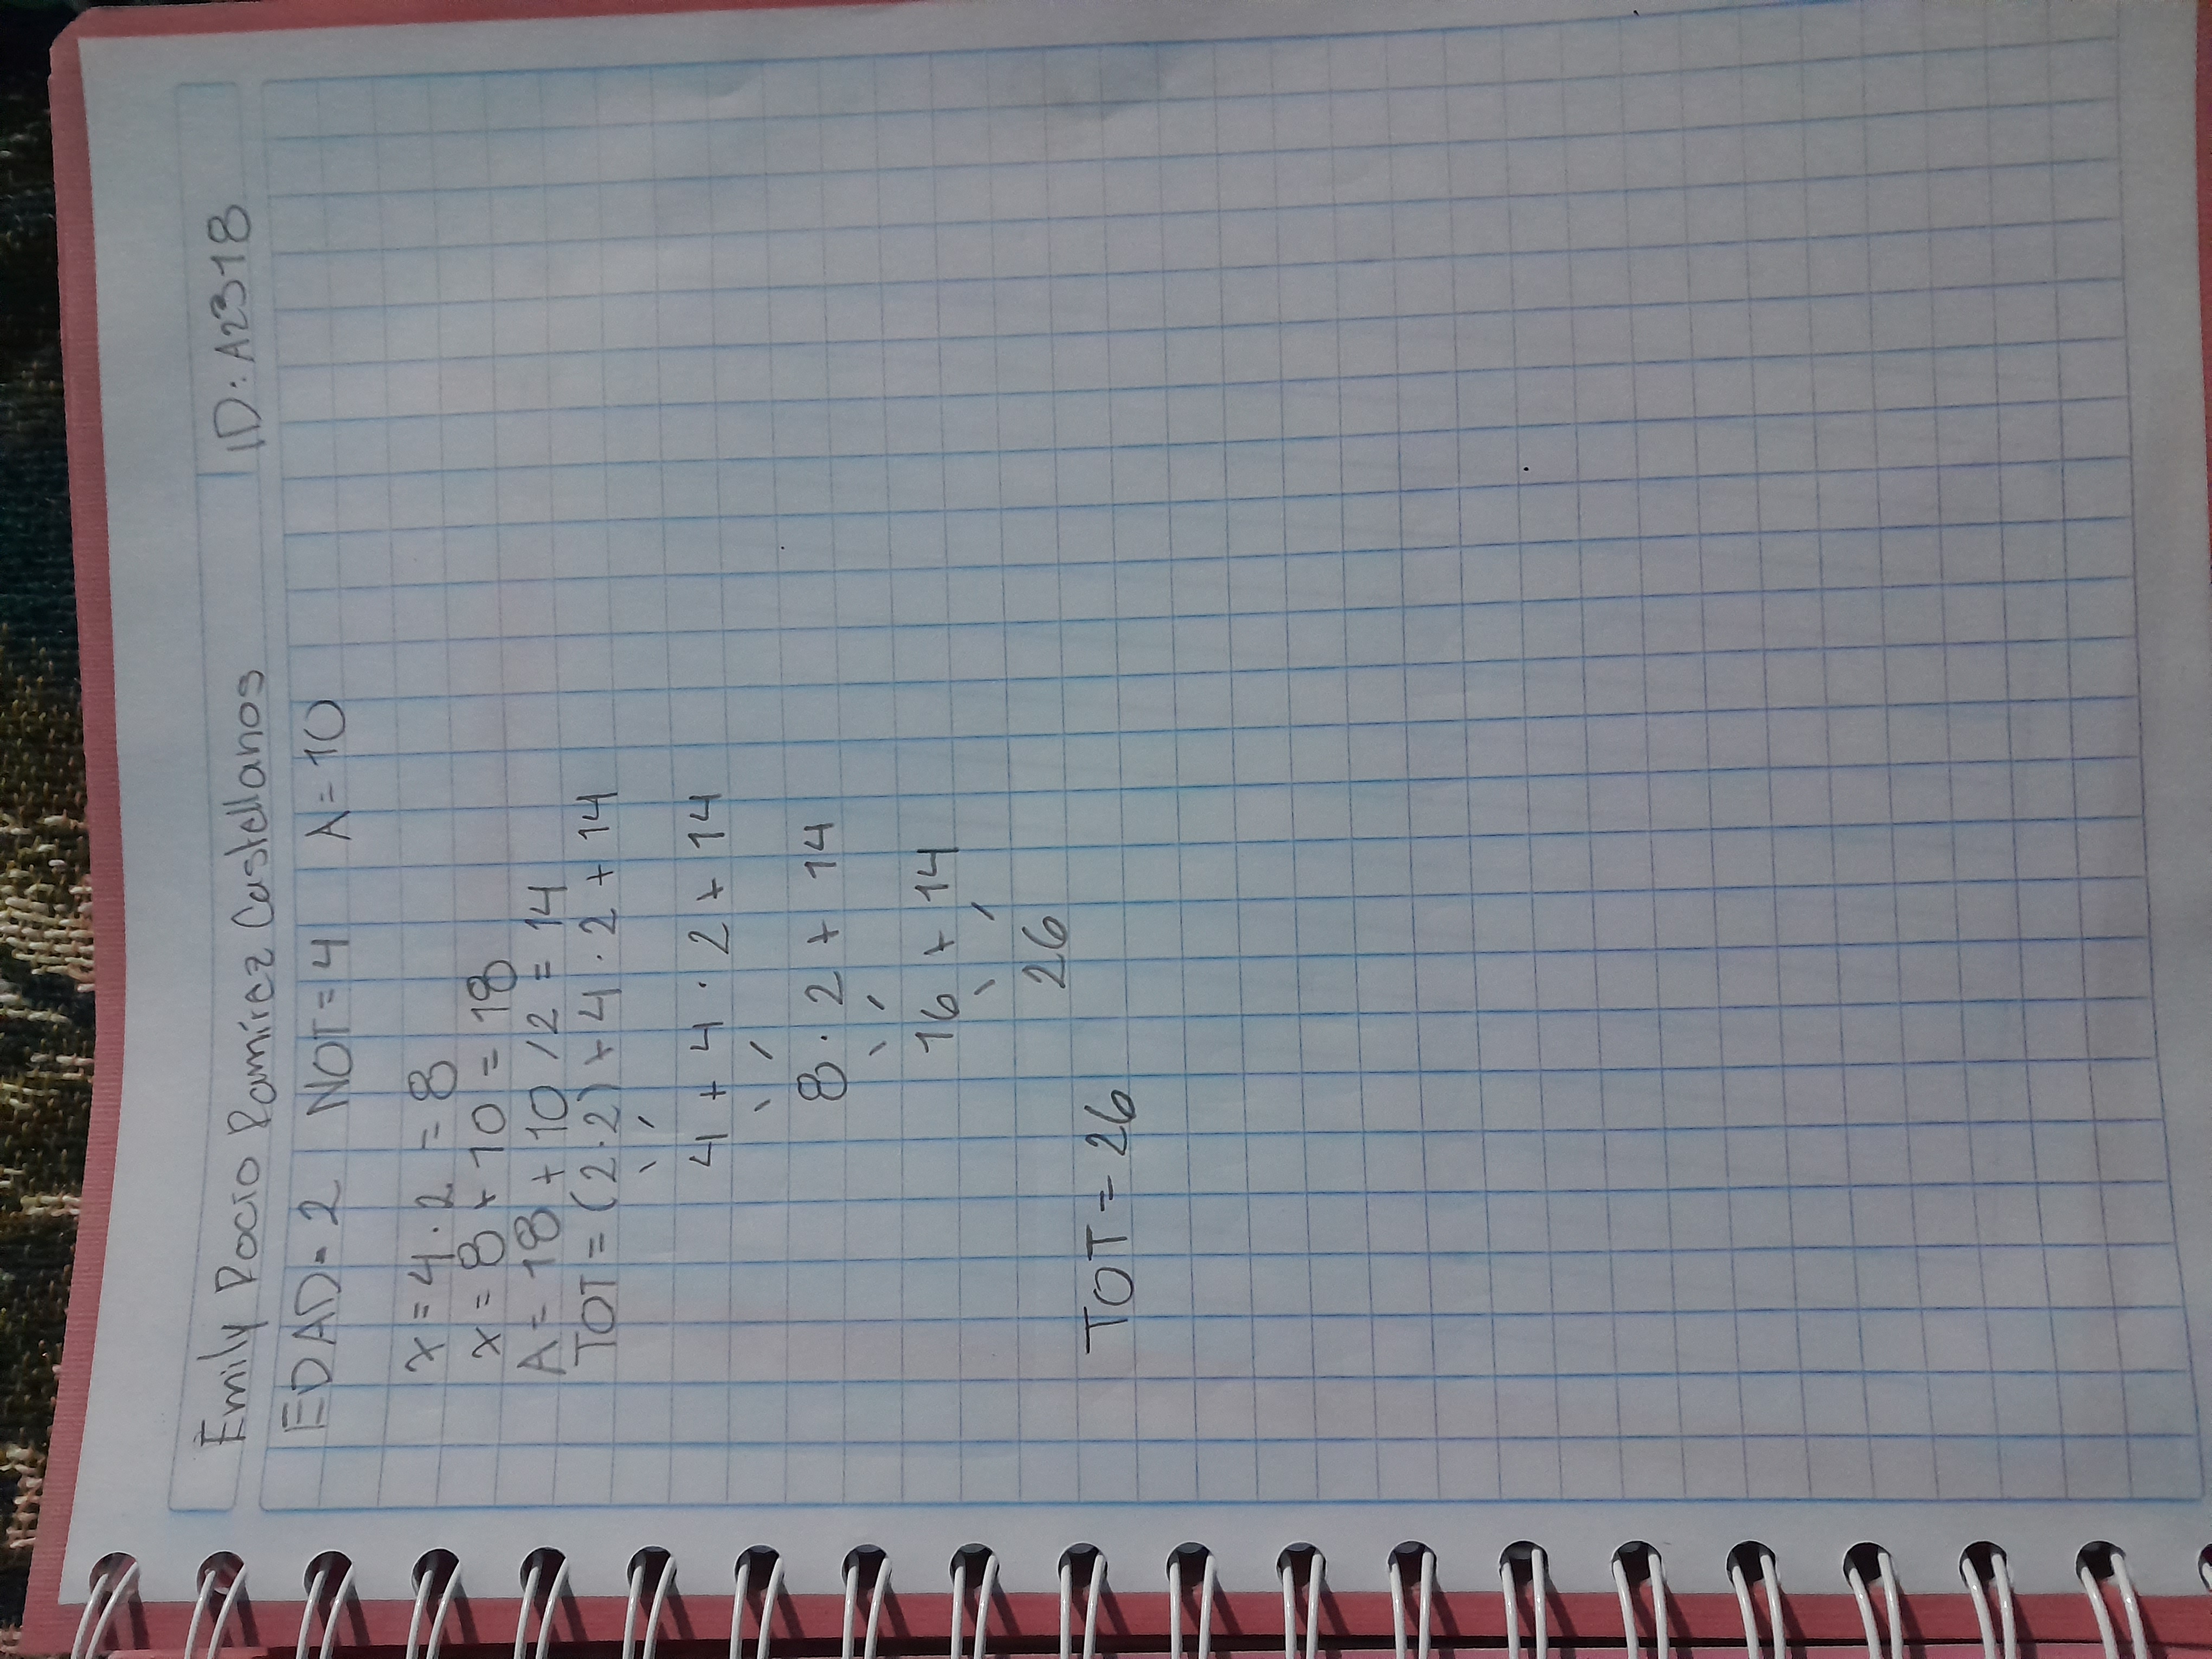 Emily Rocio Ramírez Castellanos ID: A2318
EDAD = 2 NOT = 4 A = 10
x = 4 · 2 = 8
x = 8 + 10 = 18
A = 18 + 10 / 2 = 14
TOT = (2 · 2) + 4 · 2 + 14
4 + 4 · 2 + 14
8 · 2 + 14
16 + 14
26
TOT = 26